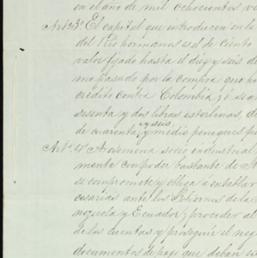 en el año de mil ochocientos v
Art.º 3.º El capital que introducen en la
del Rio hermanos es de ciento
valor fijado hasta el diez y seis de
mo pasado por la compra que h
credito contra Colombia; i se a
sesenta y dos libras esterlinas, d
y seis
de cuarenta y medio peniques p
Art.º 4.º Arosemena socio industrial
mente con poder bastante de
se compromete y obliga a entablar
cesarias ante los Gobiernos de la
nezuela y Ecuador; proceder al
de las cuentas y proseguir el neg
documentos de pago que deban se